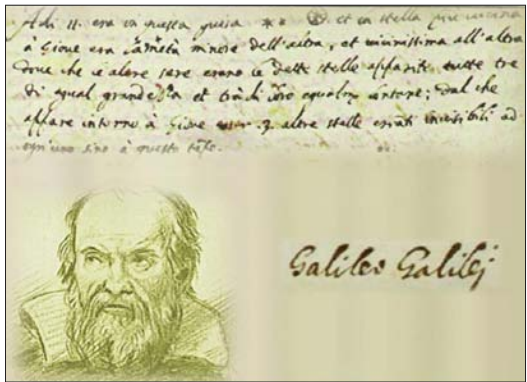 Adi 11. era in questa guisa ** et la stella più vicina
à Giove era la metà minore dell'altra, et vicinissima all'altra
dove che le altre sere erano le dette stelle apparite tutte tre
di equal grandezza et trà di loro equalm. lontane; dal che
appare intorno à Giove esser .3. altre stelle erranti invisibili ad
ogn'uno sino à questo
Galileo Galilej